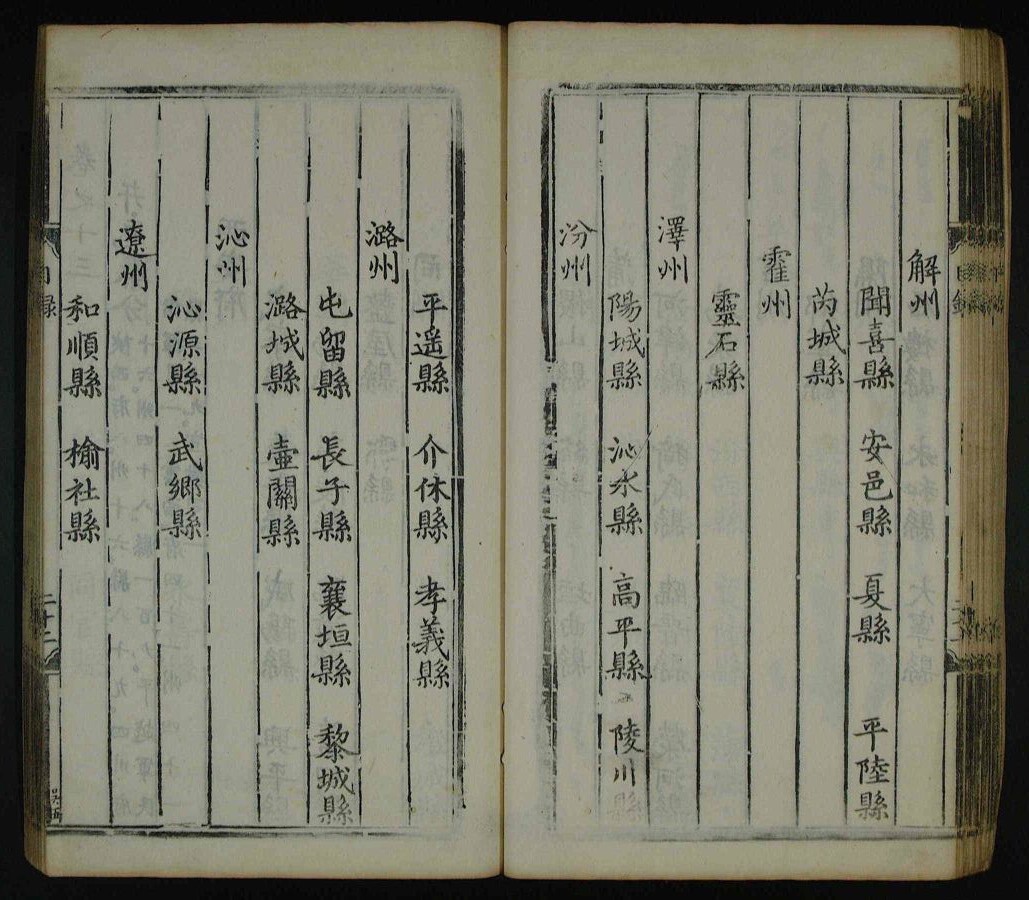 解州
聞喜縣 安邑縣 夏縣 平陸縣
芮城縣
霍州
靈石縣
澤州
陽城縣 沁水縣 高平縣 陵川縣
汾州
平遥縣 介休縣 孝義縣
潞州
屯留縣 長子縣 襄垣縣 黎城縣
潞城縣 壺關縣
沁州
沁源縣 武鄉縣
遼州
和順縣 榆社縣
目録
二十二